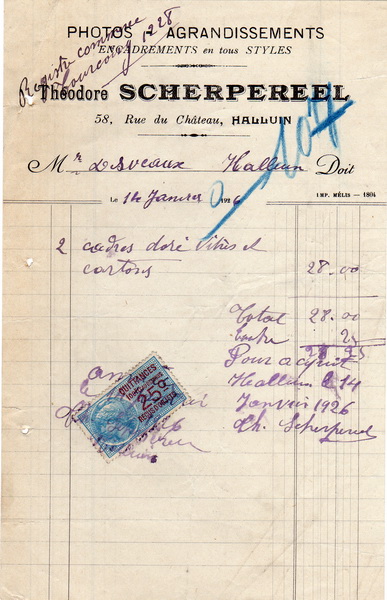 PHOTOS AGRANDISSEMENTS
ENCADREMENTS en tous STYLES
Registre commerce
Tourcoing 1228
Théodore SCHERPEREEL
58, Rue du Château, HALLUIN
107
Mr Desveaux Halluin Doit
Le 14 Janvier 1926
IMP. MÉLIS — 1804
2 cadres doré vitrés et
cartons 28.00
Total 28.00
Timbre 25
28 25
Pour acquit
Halluin le 14
Janvier 1926
Th. Scherpereel
QUITTANCES
25c